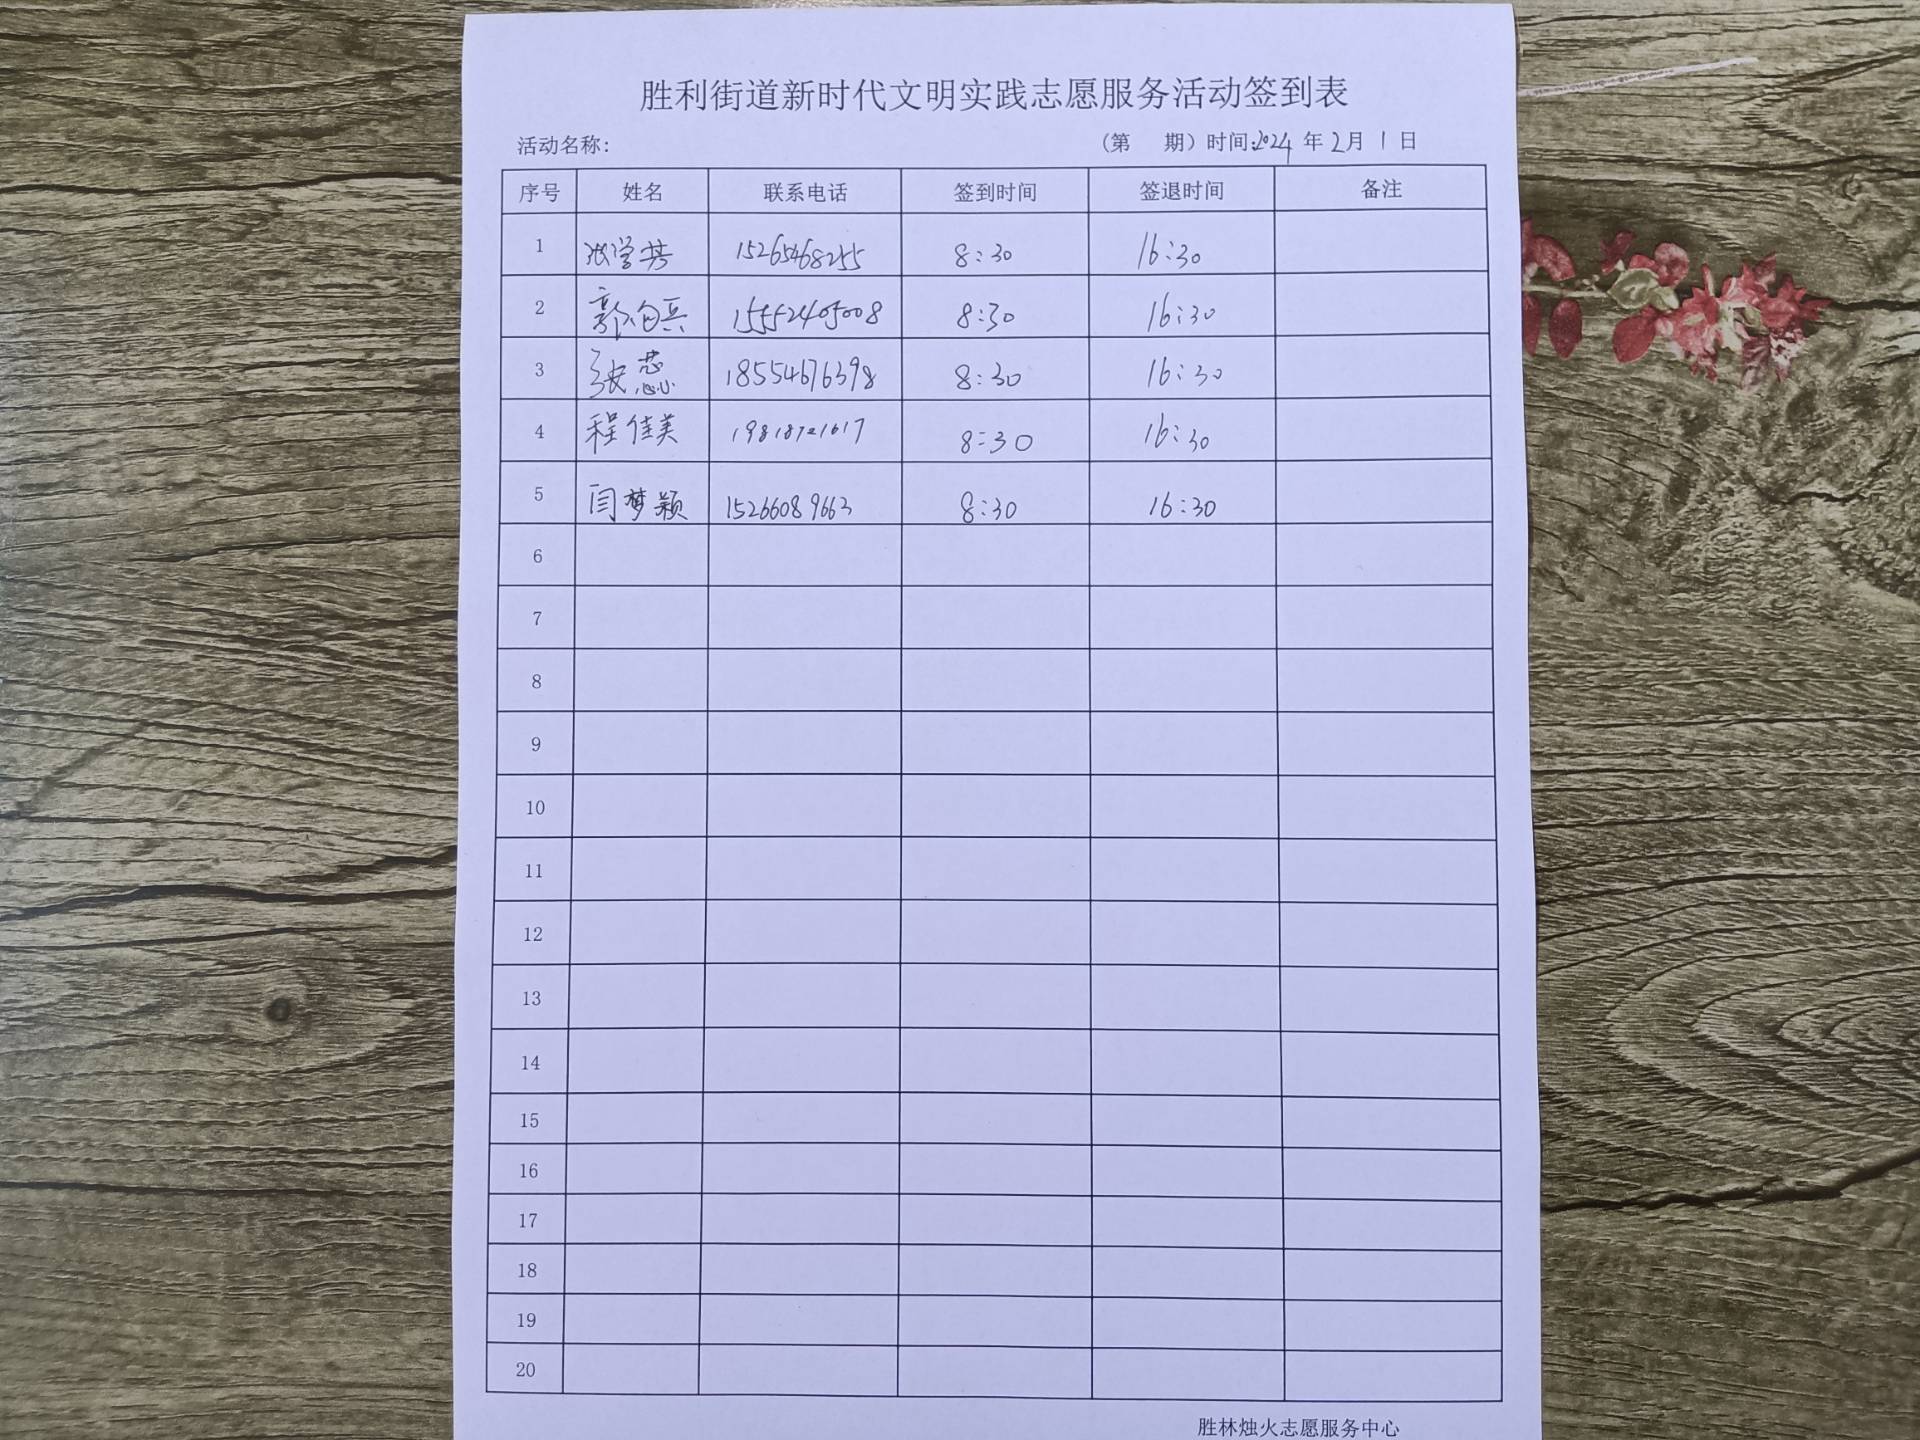 胜利街道新时代文明实践志愿服务活动签到表
活动名称: (第 期) 时间:2024 年 2月 1 日
序号 姓名 联系电话 签到时间 签退时间 备注
1 张学芳 15265468255 8:30 16:30
2 15552405008 8:30 16:30
3 张蕊 18554676398 8:30 16:30
4 程佳美 19818721617 8:30 16:30
5 闫梦颖 15266089663 8:30 16:30
6
7
8
9
10
11
12
13
14
15
16
17
18
19
20
胜林烛火志愿服务中心